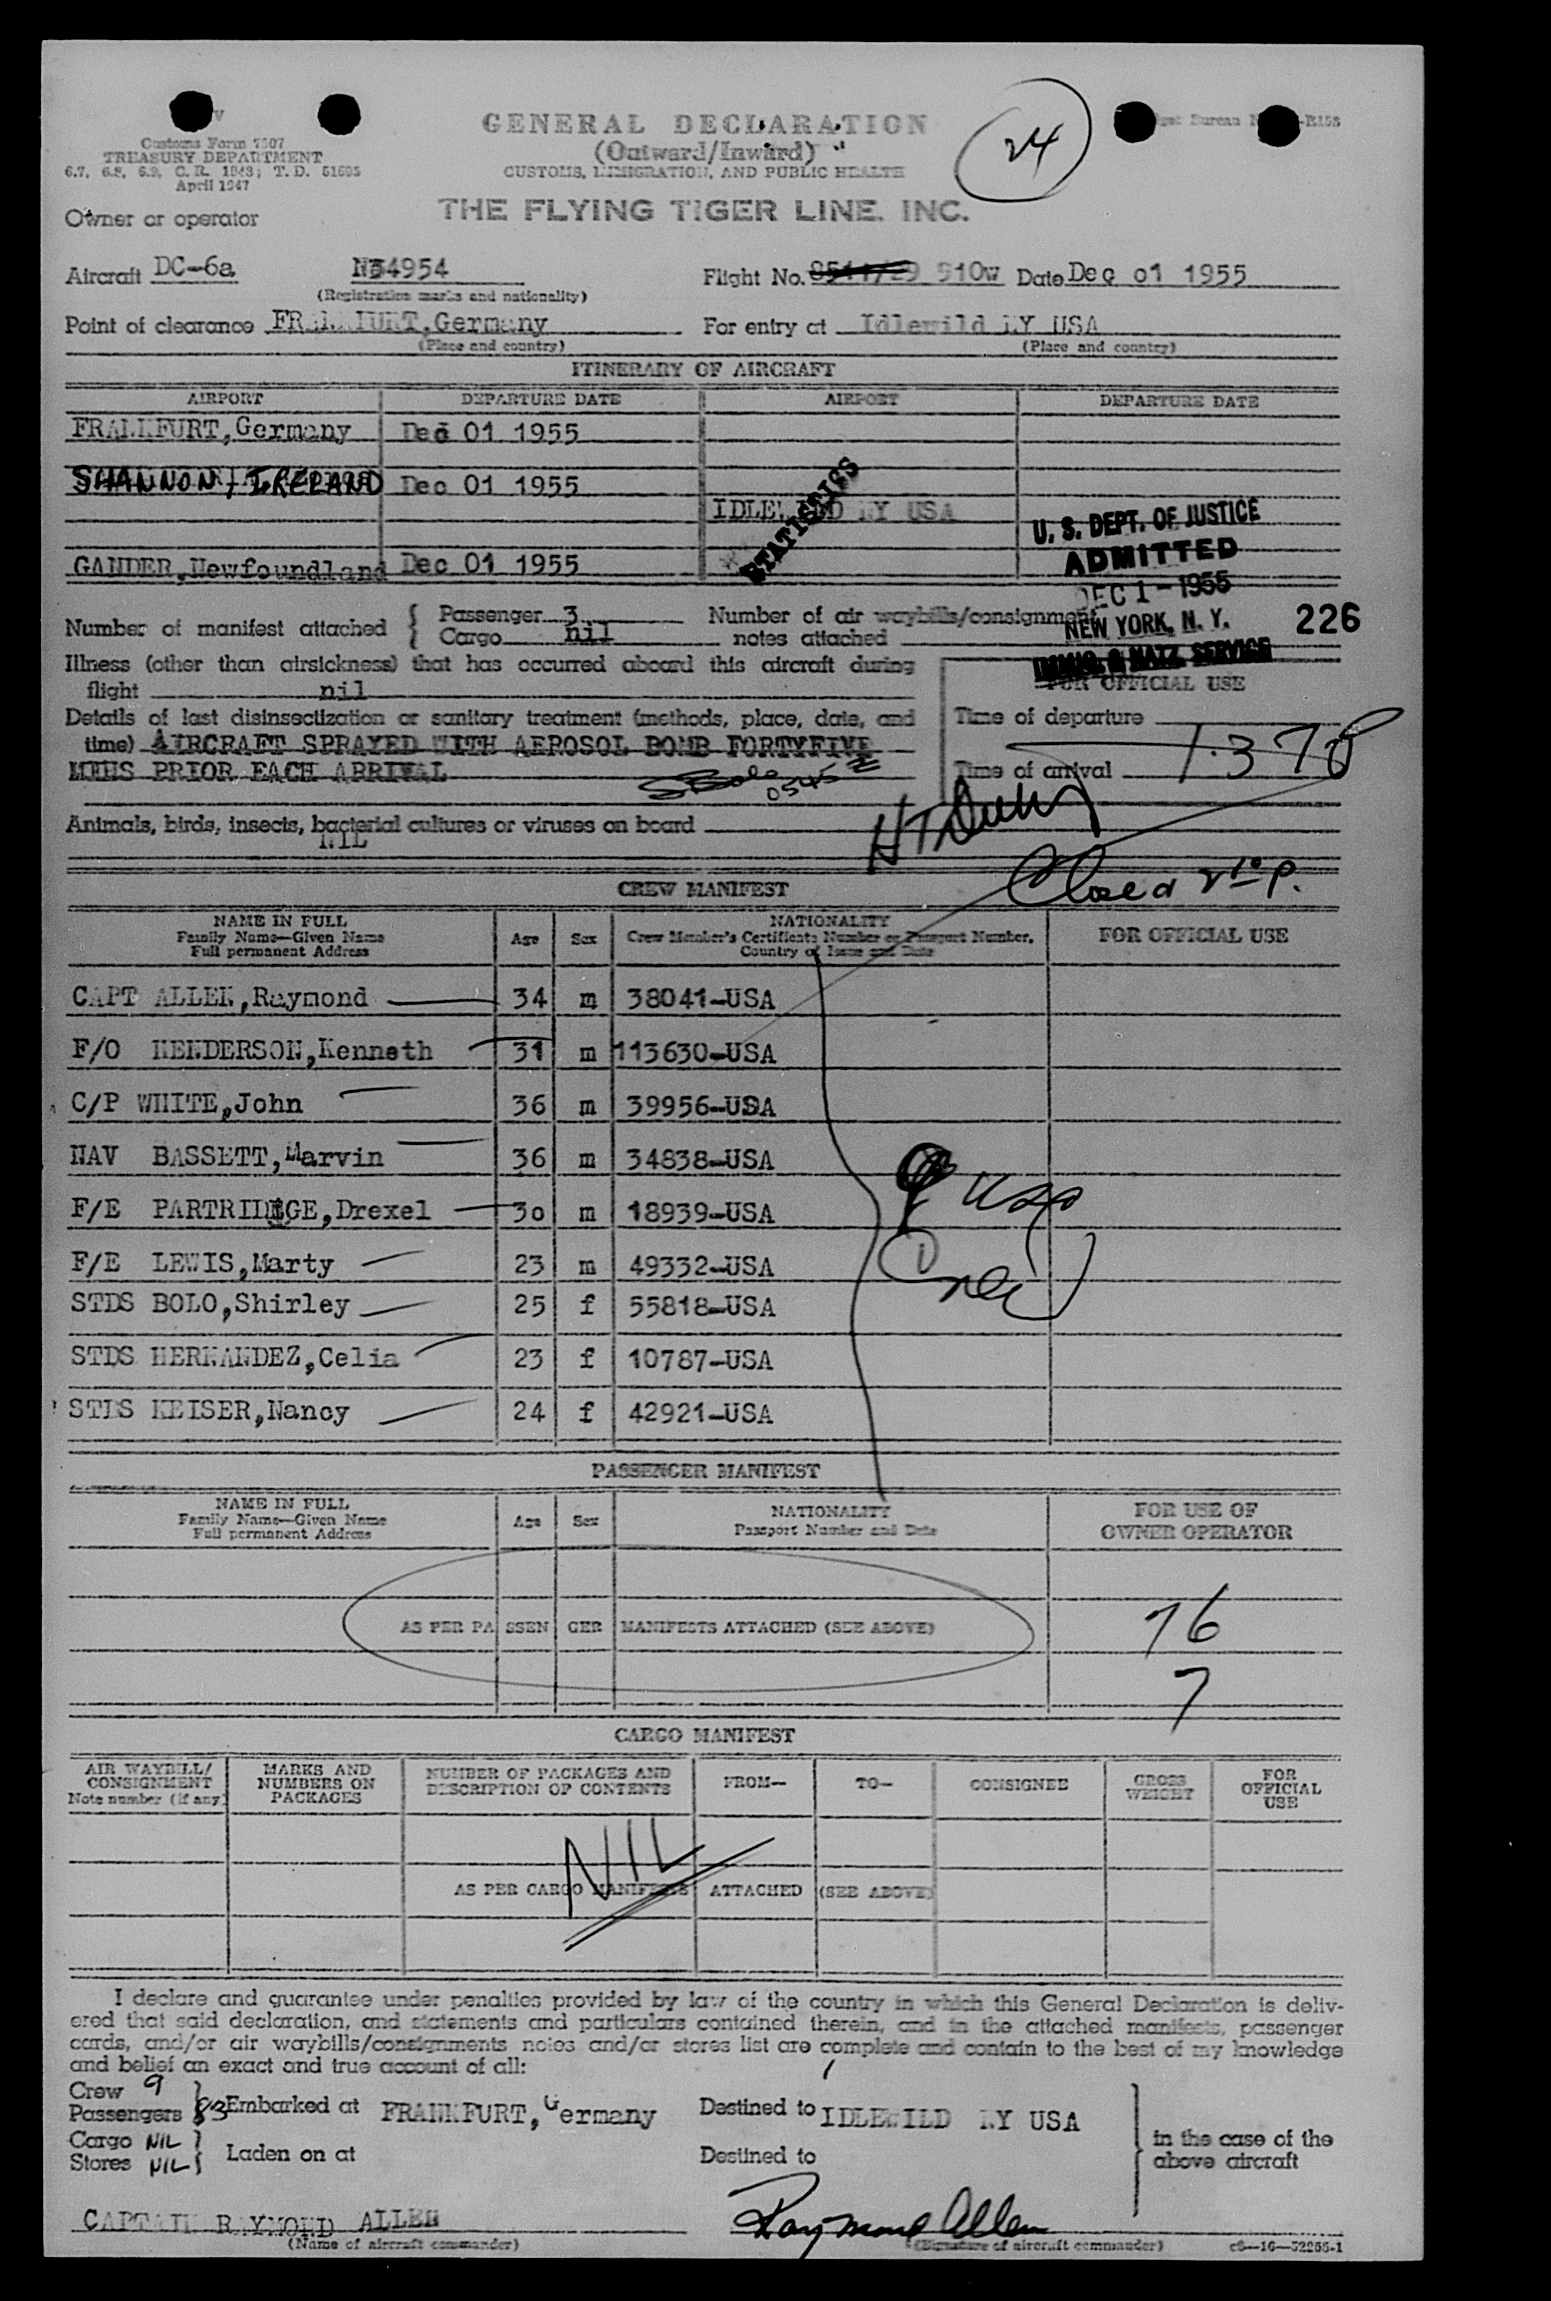 Customs Form 7507
TREASURY DEPARTMENT
6.7, 6.8, 6.9, C.R. 1943; T.D. 51605
April 1947
GENERAL DECLARATION
(Outward/Inward)
CUSTOMS, IMMIGRATION, AND PUBLIC HEALTH
24
THE FLYING TIGER LINE. INC.
Owner or operator
Aircraft DC-6a N34954 Flight No. 910w Date Dec 01 1955
(Registration marks and nationality)
Point of clearance FRANKFURT,Germany For entry at Idlewild NY USA
(Place and country) (Place and country)
ITINERARY OF AIRCRAFT
AIRPORT DEPARTURE DATE AIRPORT DEPARTURE DATE
FRANKFURT,Germany Dec 01 1955
SHANNON, IRELAND Dec 01 1955
IDLEWILD NY USA
STATISTICS
GANDER,Newfoundland Dec 01 1955
U. S. DEPT. OF JUSTICE
ADMITTED
DEC 1 - 1955
NEW YORK, N. Y.
IMMIG. & NATZ. SERVICE
226
Number of manifest attached { Passenger 3 Number of air waybills/consignment
Cargo nil notes attached
Illness (other than airsickness) that has occurred aboard this aircraft during
flight nil
FOR OFFICIAL USE
Details of last disinsectization or sanitary treatment (methods, place, date, and
time) AIRCRAFT SPRAYED WITH AEROSOL BOMB FORTYFIVE
MINS PRIOR EACH ARRIVAL
SBolo 0545 Z
Time of departure
Time of arrival 1:37P
Animals, birds, insects, bacterial cultures or viruses on board
NIL
Closed 2 10 P.
CREW MANIFEST
NAME IN FULL
Family Name—Given Name
Full permanent Address
Age Sex
NATIONALITY
Crew Member's Certificate Number or Passport Number,
Country of Issue and Date
FOR OFFICIAL USE
CAPT ALLEN,Raymond 34 m 38041-USA
F/O HENDERSON,Kenneth 31 m 113630-USA
C/P WHITE,John 36 m 39956-USA
NAV BASSETT,Marvin 36 m 34838-USA
F/E PARTRIDGE,Drexel 30 m 18939-USA
F/E LEWIS,Marty 23 m 49332-USA
STDS BOLO,Shirley 25 f 55818-USA
STDS HERNANDEZ,Celia 23 f 10787-USA
STDS KEISER,Nancy 24 f 42921-USA
9 USC
PASSENGER MANIFEST
NAME IN FULL
Family Name—Given Name
Full permanent Address
Age Sex
NATIONALITY
Passport Number and Date
FOR USE OF
OWNER OPERATOR
AS PER PASSENGER MANIFESTS ATTACHED (SEE ABOVE)
76
7
CARGO MANIFEST
AIR WAYBILL/
CONSIGNMENT
Note number (if any)
MARKS AND
NUMBERS ON
PACKAGES
NUMBER OF PACKAGES AND
DESCRIPTION OF CONTENTS
FROM— TO— CONSIGNEE
GROSS
WEIGHT
FOR
OFFICIAL
USE
NIL
AS PER CARGO MANIFESTS ATTACHED (SEE ABOVE)
I declare and guarantee under penalties provided by law of the country in which this General Declaration is deliv-
ered that said declaration, and statements and particulars contained therein, and in the attached manifests, passenger
cards, and/or air waybills/consignments notes and/or stores list are complete and contain to the best of my knowledge
and belief an exact and true account of all:
Crew 9
Passengers 83 } Embarked at FRANKFURT, Germany Destined to IDLEWILD NY USA
Cargo NIL
Stores NIL } Laden on at Destined to
in the case of the
above aircraft
CAPTAIN RAYMOND ALLEN Raymond Allen
(Name of aircraft commander) (Signature of aircraft commander)
c6—16—52265-1